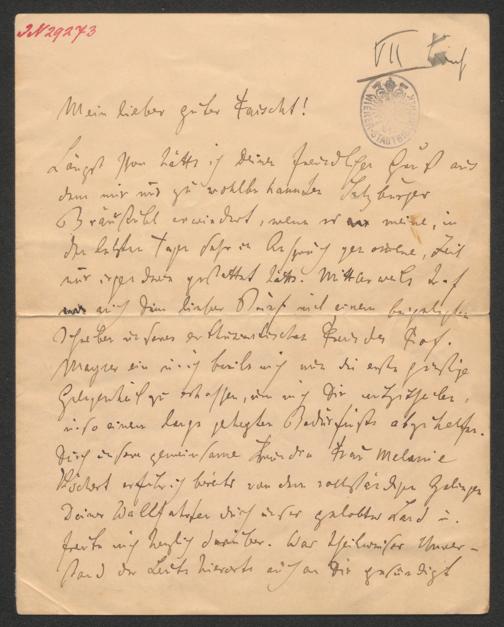 JN 29273
VII
WIENER STADTBIBLIOTHEK
Mein lieber guter Faischt!
Längst schon hätte ich Deinen freundlichen Gruß aus
dem mir nur zu wohlbekannten Salzburger
Bräustübl erwiedert, wenn
der letzten Tage sehr in Anspruch genommene Zeit
mir gestattet hätte. Mittlerweile traf
auch Dein lieber Brief mit einem
Schreiben unseres enthusiastischen Freundes Prof.
Mayser ein u. ich beeile mich nun die erste günstige
Gelegenheit zu erhaschen, um mich Dir mitzutheilen,
u. so einem längst gehegten Bedürfnisse abzuhelfen.
Durch unsere gemeinsame Freundin Frau Melanie
Köchert erfuhr ich bereits von dem vollständigen Gelingen
Deiner Wallfahrten durch unser gelobtes Land u.
freute mich herzlich darüber. War theilweiser Unver-
stand der Leute hierorts auch an Dir gesündigt